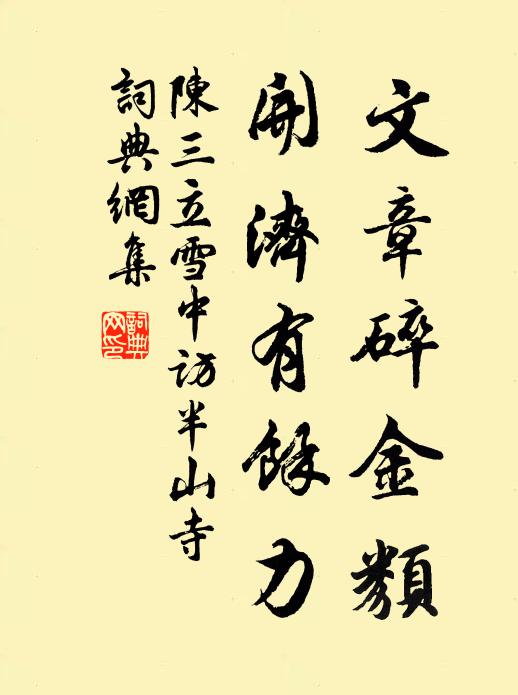 文章碎金類
開濟有餘力
陳三立雪中訪半山寺
詞典網集
詞典網印